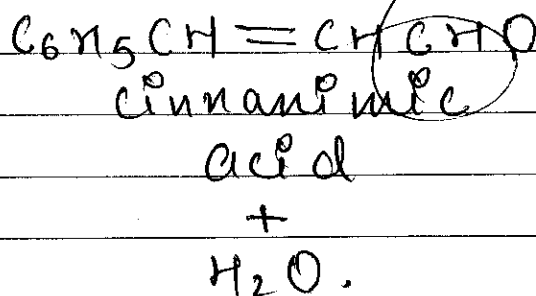 C6H5CH=CHCHO
cinnanimic
acid
+
H2O.